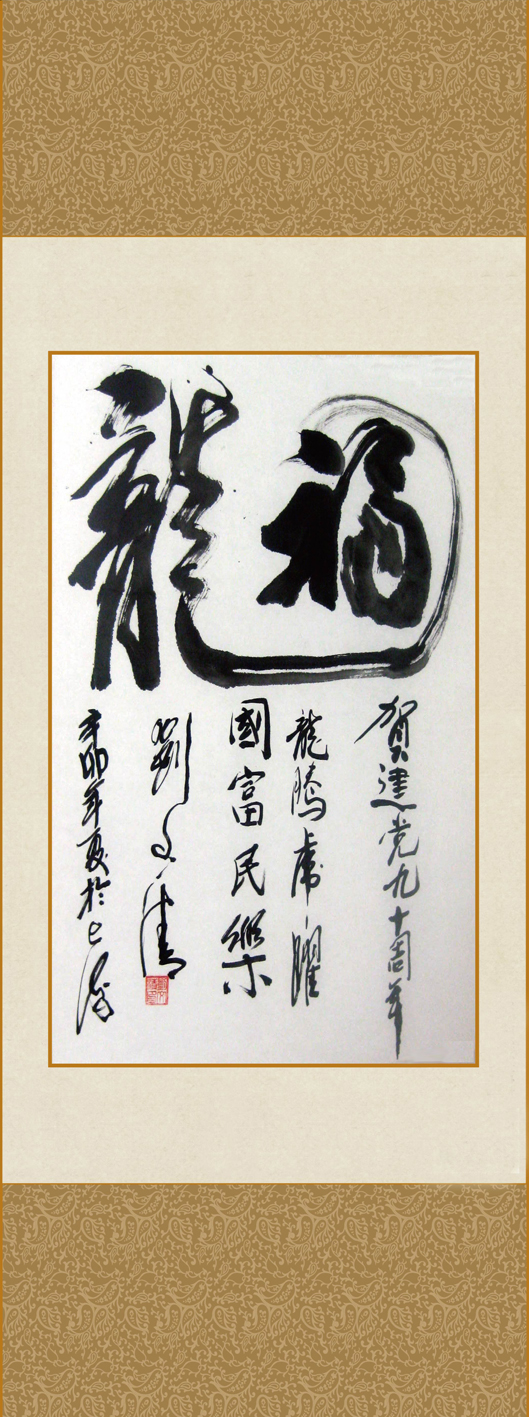 福龍
賀建党九十周年
龍騰虎躍
國富民樂
劉文清
辛卯年夏於